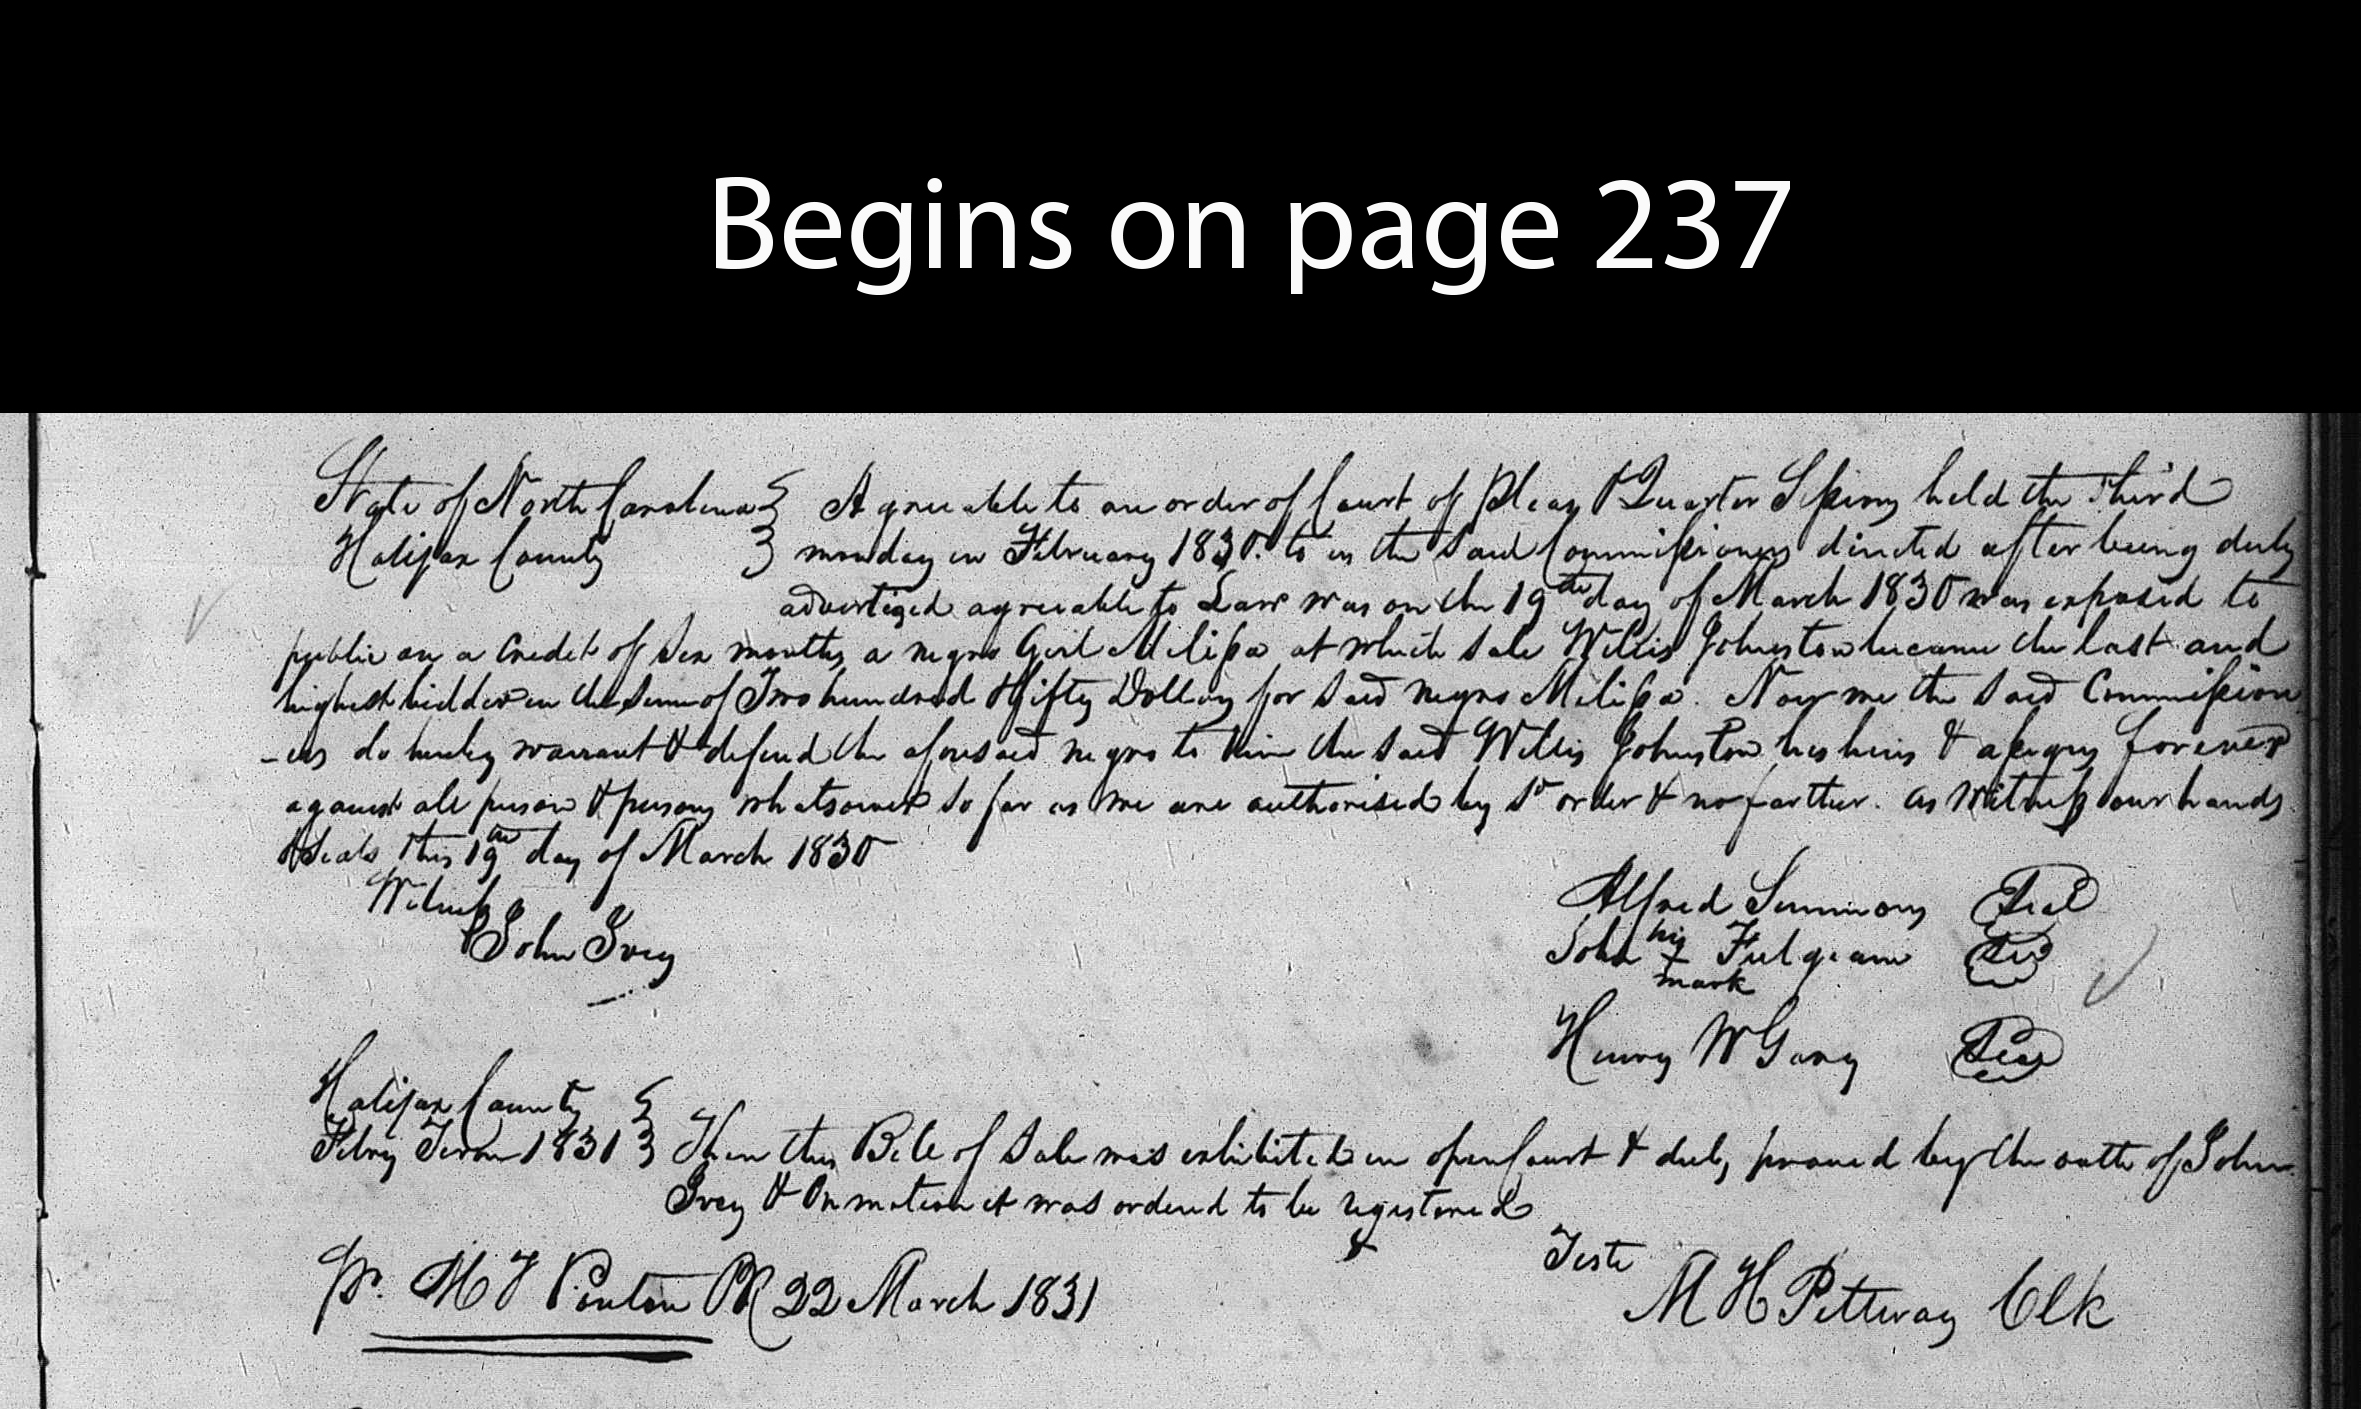 Begins on page 237
State of North Carolina } Agreeable to an order of Court of Pleas & Quarter Sessions held the third
Halifax County } monday in February 1830. to us the said Commissioners directed after being duly
advertized agreeable to Law was on the 19th day of March 1830 was exposed to
public on a Credit of Six months a negro Girl Melissa at which sale Willis Johnston became the last and
highest bidder in the sum of Two hundred & fifty Dollars for said negro Melissa. Now we the said Commission
-ers do hereby warrant & defend the aforesaid negro to him the said Willis Johnston his heirs & assigns forever
against all person & persons whatsoever so far as we are authorised by sd order & no farther. as Witness our hands
& seals this 19th day of March 1830
Witness
John Ivey
Alfred Simmons Seal
John his + mark Fulgeam Seal
Henry W Gary Seal
Halifax County }
Febry Term 1831 } Then this Bill of Sale was exhibited in open Court & duly proved by the oath of John
Ivey & On motion it was ordered to be registered
&
Teste
M H Pettway Clk
Pr. M T Ponton PR 22 March 1831